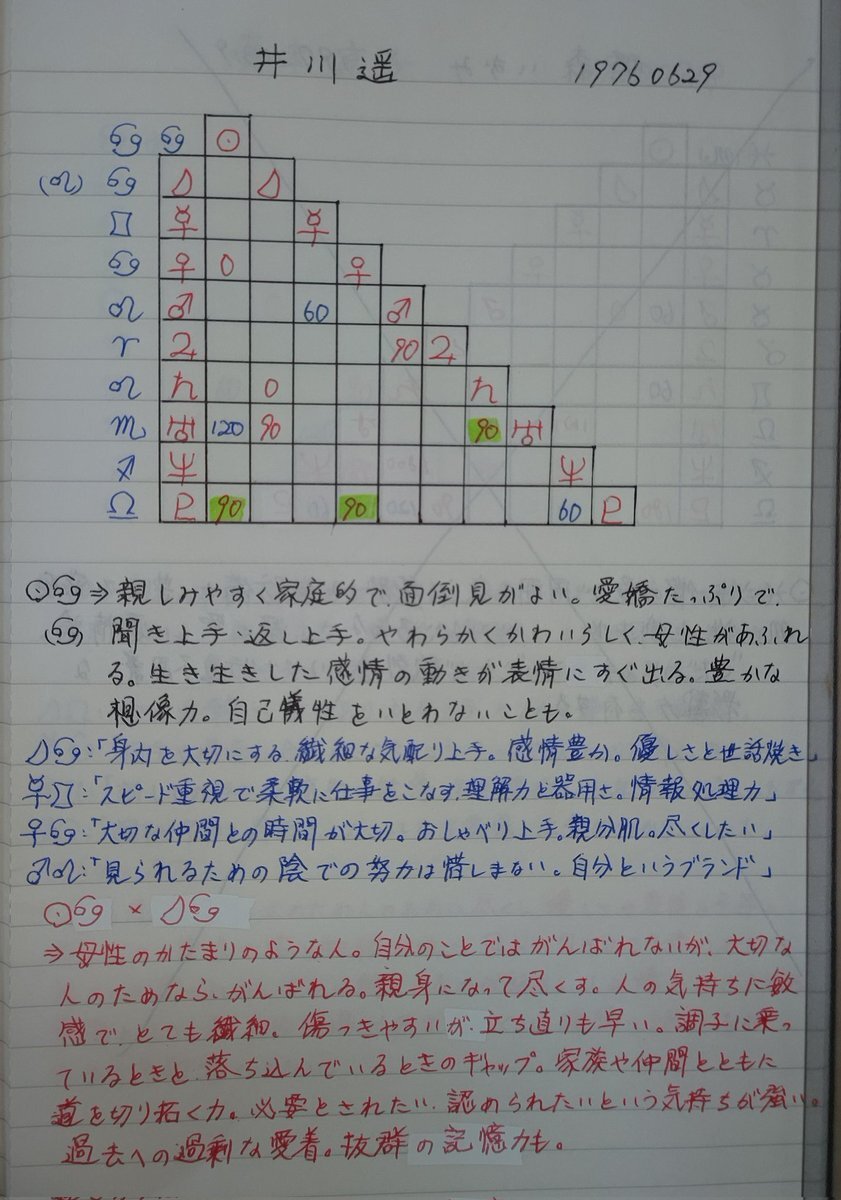 井川遥 19760629
♋ ♋ ☉
(♌) ♋ ☽ ☽
♊ ☿ ☿
♋ ♀ 0 ♀
♌ ♂ 60 ♂
♈ ♃ 90 ♃
♌ ♄ 0 ♄
♏ ♅ 120 90 90 ♅
♐ ♆ ♆
♎ ♇ 90 90 60 ♇
☉♋⇒親しみやすく家庭的で、面倒見がよい。愛嬌たっぷりで、
(♋) 聞き上手・返し上手。やわらかくかわいらしく、母性があふれ
る。生き生きした感情の動きが表情にすぐ出る。豊かな
想像力。自己犠牲をいとわないことも。
☽♋:「身内を大切にする、繊細な気配り上手。感情豊か。優しさと世話焼き」
☿♊:「スピード重視で柔軟に仕事をこなす、理解力と器用さ。情報処理力」
♀♋:「大切な仲間との時間が大切。おしゃべり上手。親分肌。尽くしたい」
♂♌:「見られるための陰での努力は惜しまない。自分というブランド」
☉♋ × ☽♋
⇒母性のかたまりのような人。自分のことではがんばれないが、大切な
人のためなら、がんばれる。親身になって尽くす。人の気持ちに敏
感で、とても繊細。傷つきやすいが、立ち直りも早い。調子に乗っ
ているときと、落ち込んでいるときのギャップ。家族や仲間とともに
道を切り拓く力。必要とされたい、認められたいという気持ちが強い。
過去への過剰な愛着。抜群の記憶力も。